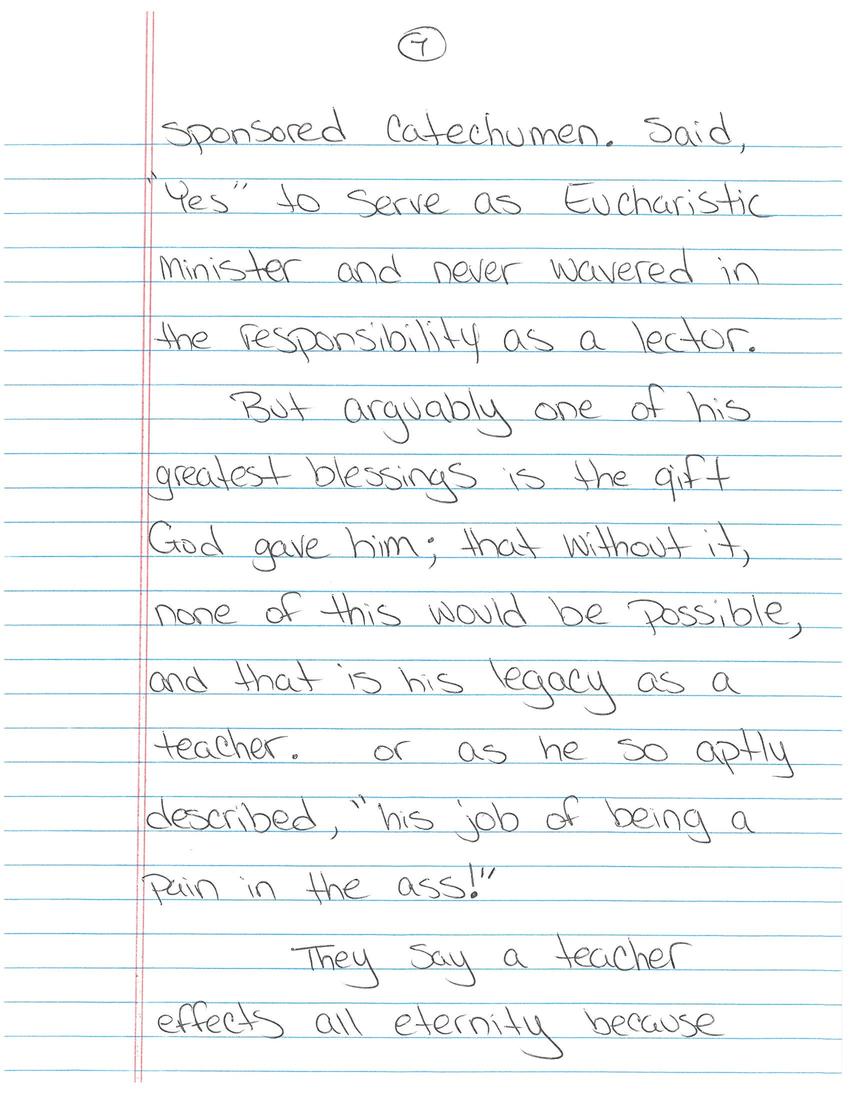 7
sponsored Catechumen. Said,
"Yes" to serve as Eucharistic
Minister and never wavered in
the responsibility as a lector.
But arguably one of his
greatest blessings is the gift
God gave him; that without it,
none of this would be possible,
and that is his legacy as a
teacher. or as he so aptly
described, "his job of being a
pain in the ass!"
They say a teacher
effects all eternity because